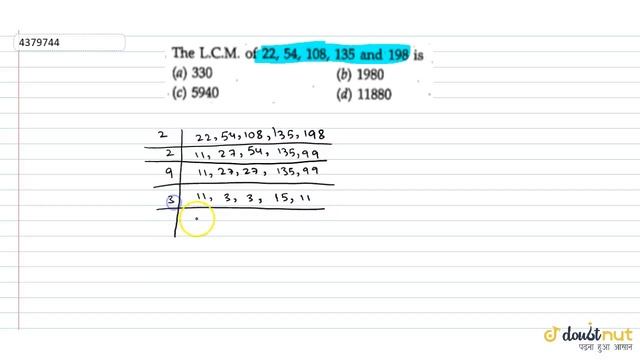 4379744
The L.C.M. of 22, 54, 108, 135 and 198 is
(a) 330 (b) 1980
(c) 5940 (d) 11880
2 22, 54, 108, 135, 198
2 11, 27, 54, 135, 99
9 11, 27, 27, 135, 99
3 11, 3, 3, 15, 11
doubtnut
पढ़ना हुआ आसान